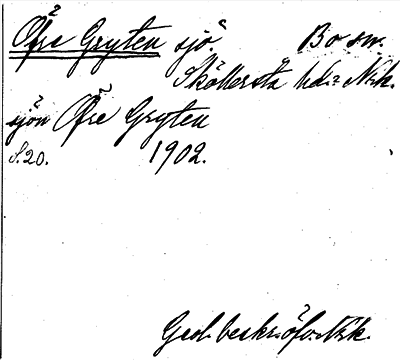 Öfre Gryten sjö. Bo sn.
Sköllersta hd. Nrk.
sjön Öfre Gryten
S. 20. 1902.
Geol. beskr. öfv. Nrk.